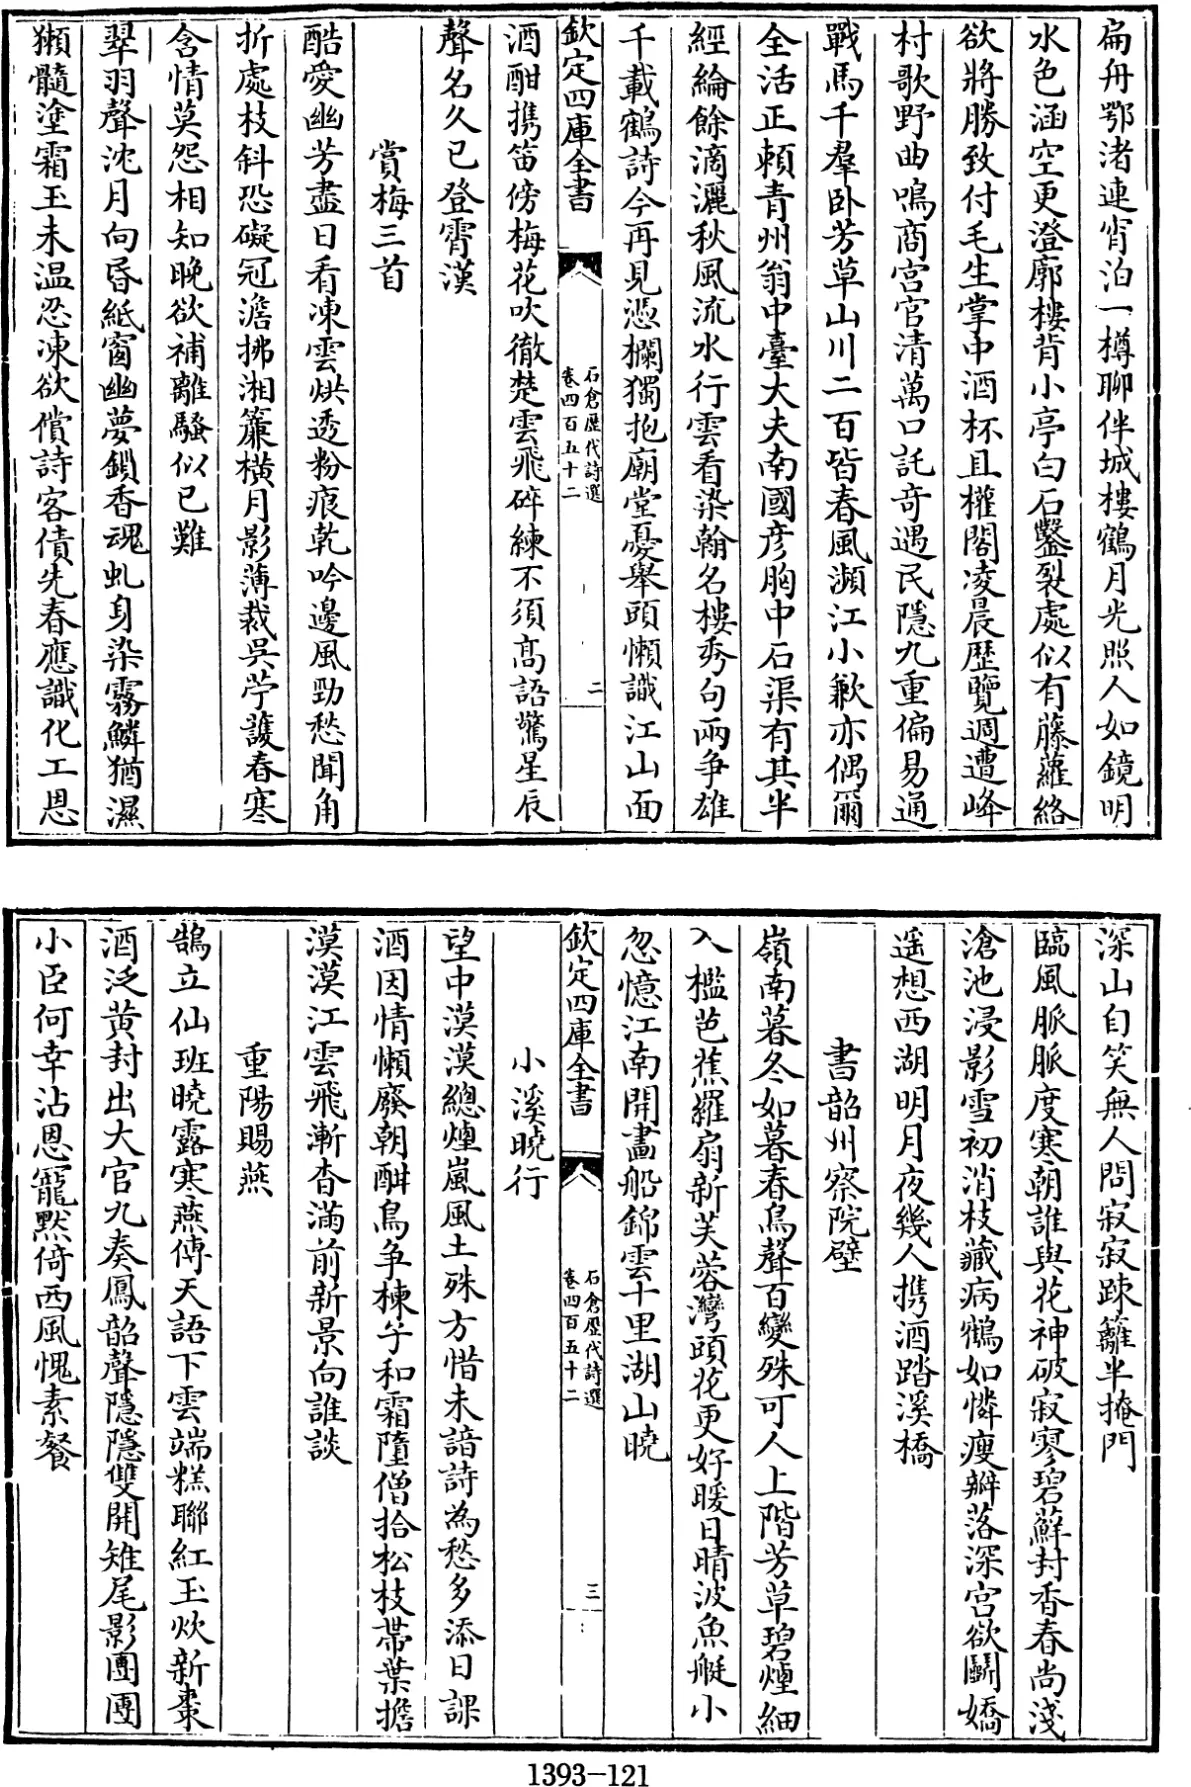 扁舟鄂渚連宵泊一樽聊伴城樓鶴月光照人如鏡明
水色涵空更澄廓樓背小亭白石鑿裂處似有藤蘿絡
欲將勝致付毛生掌中酒杯且權閣凌晨歷覽週遭峰
村歌野曲鳴商宮官清萬口託竒遇民隱九重偏易通
戰馬千羣卧芳草山川二百皆春風瀕江小歉亦偶爾
全活正頼青州翁中臺大夫南國彦胸中石渠有其半
經綸餘滴灑秋風流水行雲看染翰名樓秀句兩争雄
千載鶴詩今再見憑欄獨抱廟堂憂舉頭懶識江山面
欽定四庫全書
石倉歷代詩選
卷四百五十二
二
酒酣攜笛傍梅花吹徹楚雲飛碎練不須髙語驚星辰
聲名久已登霄漢
賞梅三首
酷愛幽芳盡日看凍雲烘透粉痕乾吟邊風勁愁聞角
折處枝斜恐礙冠澹拂湘簾横月影薄裁吳苧護春寒
含情莫怨相知晚欲補離騷似已難
翠羽聲沈月向昏紙窗幽夢鎖香魂虬身染霧鱗猶濕
獺髓塗霜玉未温忍凍欲償詩客債先春應識化工恩
深山自笑無人問寂寂疎籬半掩門
臨風脈脈度寒朝誰與花神破寂寥碧蘚封香春尚淺
滄池浸影雪初消枝藏病鶴如憐瘦瓣落深宫欲鬬嬌
遥想西湖明月夜幾人攜酒踏溪橋
書韶州察院壁
嶺南暮冬如暮春鳥聲百變殊可人上階芳草碧煙細
入檻芭蕉羅扇新芙蓉灣頭花更好暖日晴波魚艇小
忽憶江南開畫船錦雲十里湖山曉
欽定四庫全書
石倉歷代詩選
卷四百五十二
三
小溪曉行
望中漠漠總煙嵐風土殊方惜未諳詩為愁多添日課
酒因情懶廢朝酣鳥争楝子和霜墮僧拾松枝帶葉擔
漠漠江雲飛漸杳滿前新景向誰談
重陽賜燕
鵠立仙班曉露寒燕傳天語下雲端糕聯紅玉炊新棗
酒泛黄封出大官九奏鳳韶聲隱隱雙開雉尾影團團
小臣何幸沾恩寵黙倚西風愧素餐
1393-121